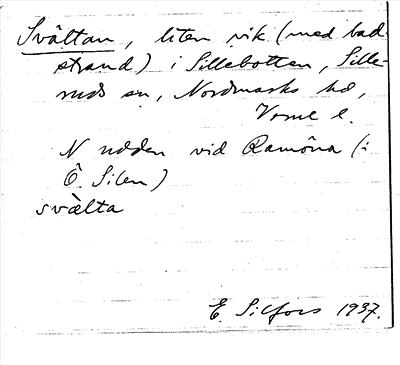 Svältan, liten vik (med bad
strand) i Sillebotten, Sille-
ruds sn, Nordmarks hd,
Vrml l.
N udden vid Ramôna (i
Ö. Silen)
svàlta
E. Silfors 1937.